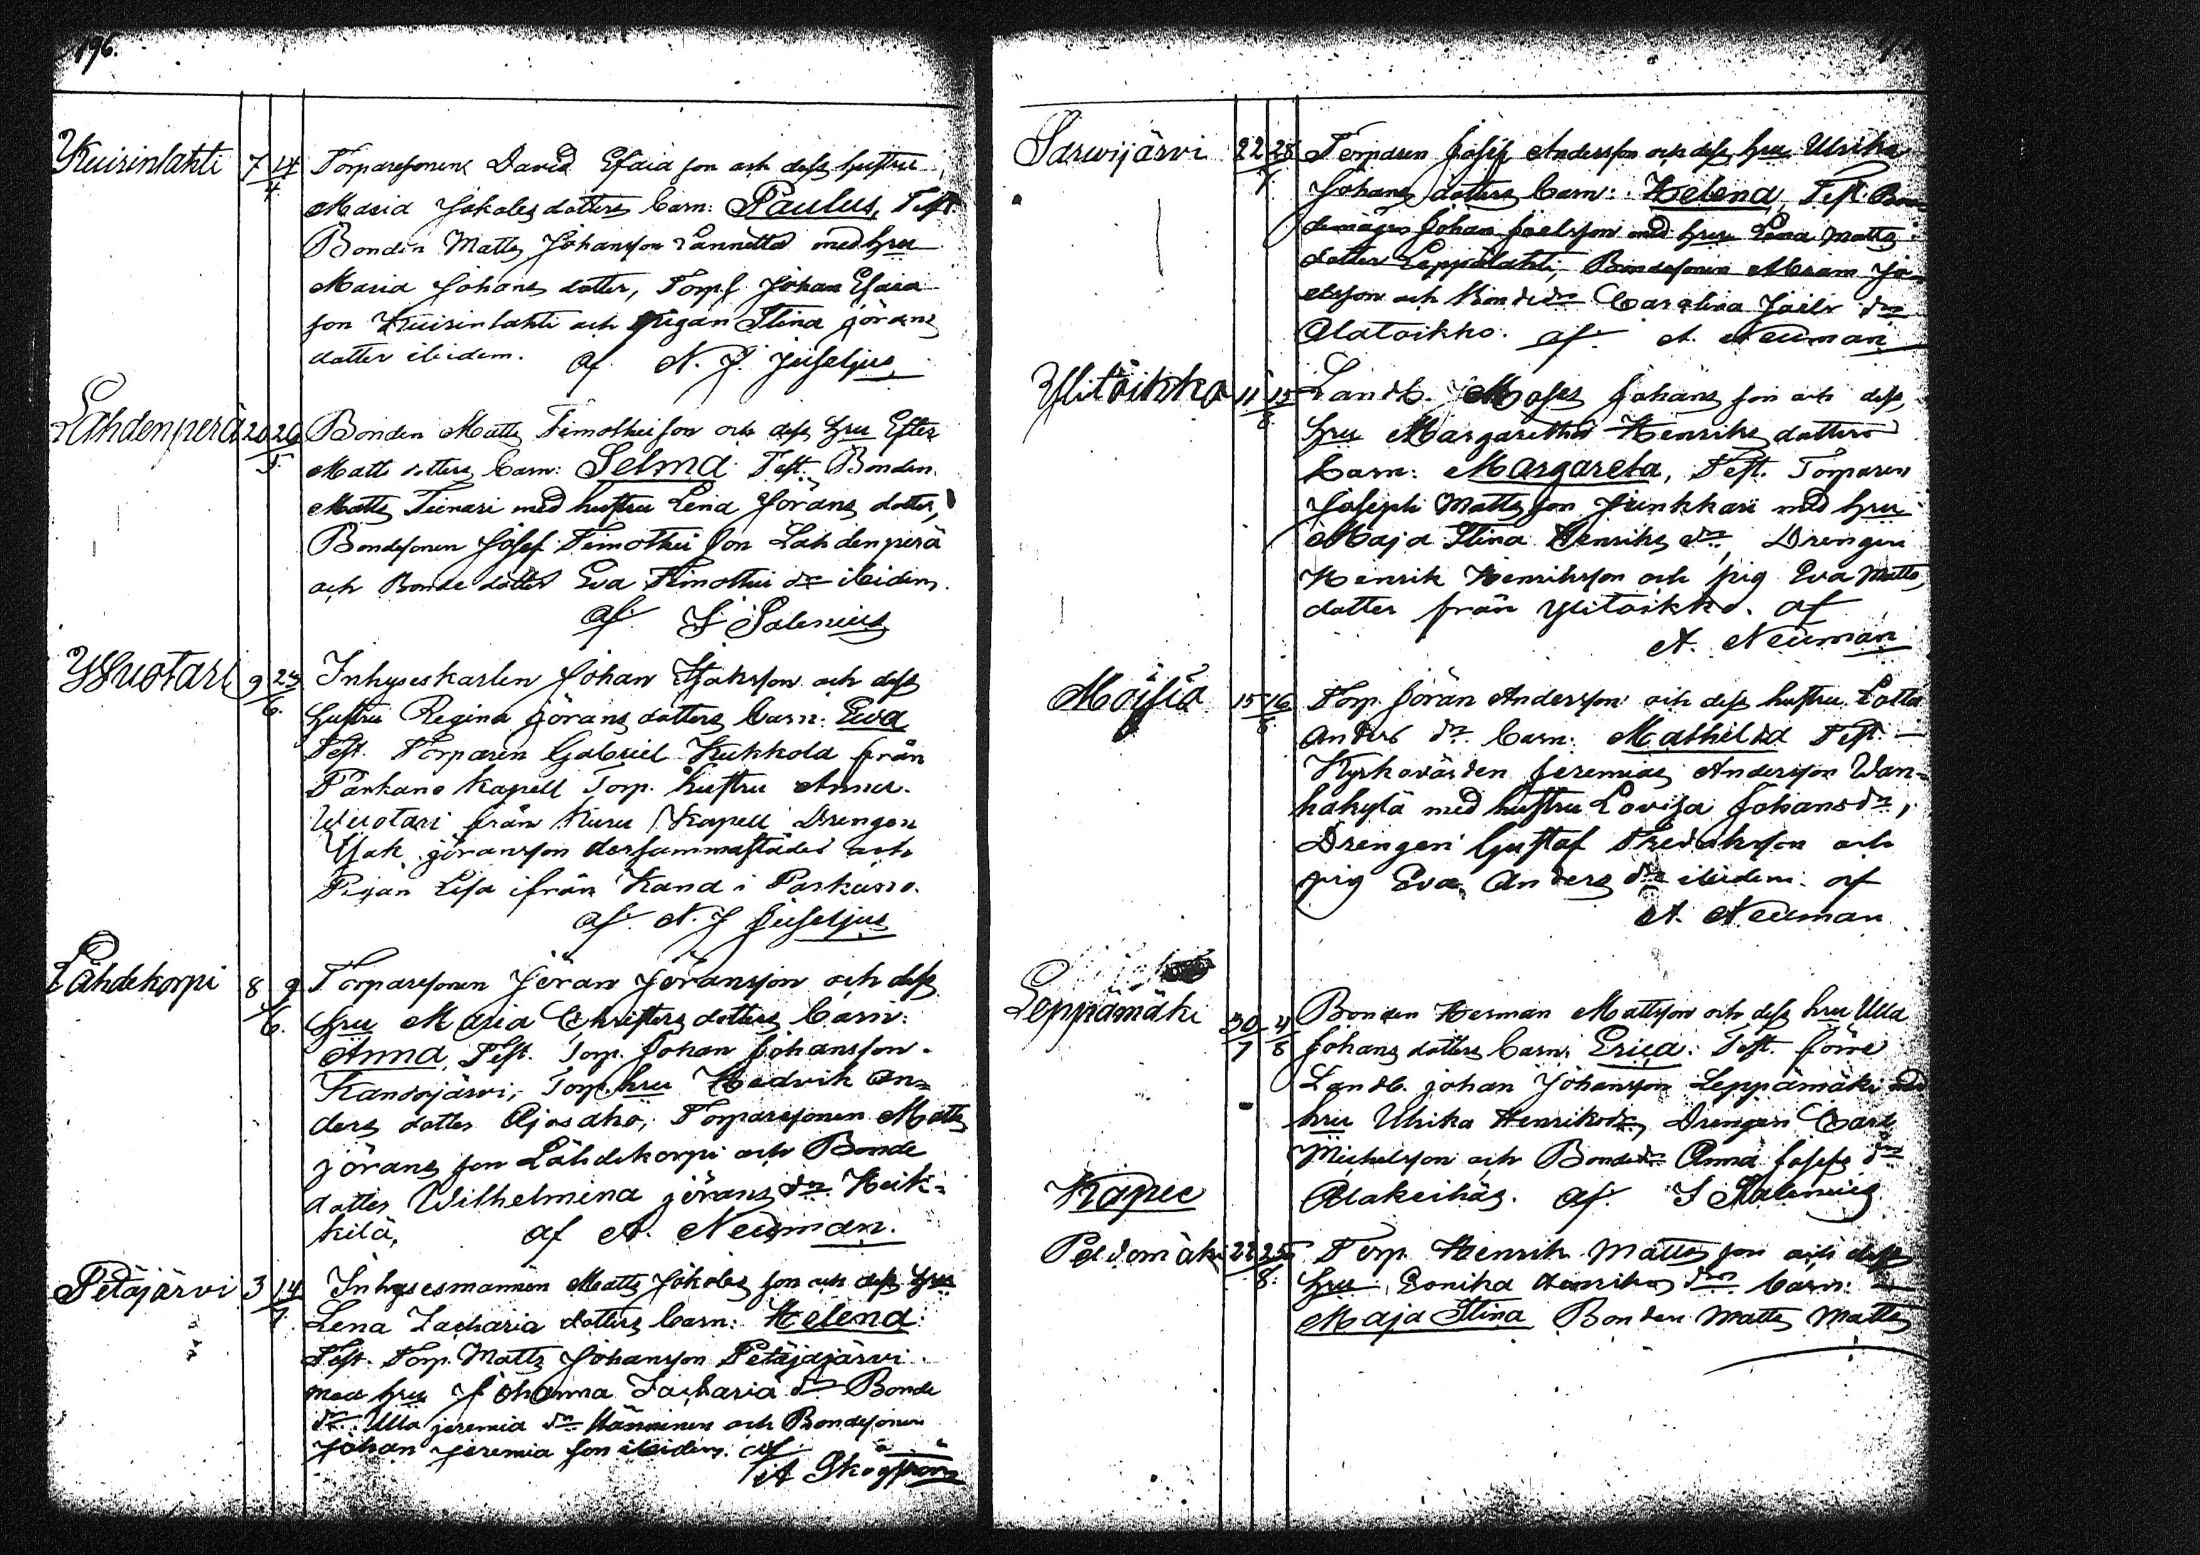 196.
Kuirinlahti 7 14/4 Torparesonens David Esaia son och dess hustru
Maria Jakobs dotters barn: Paulus, Test.
Bonden Matts Johansson Lannetta med hru
Maria Johans dotter, Torp. Johan Esaia
son Kuirinlahti och Pigan Stina Görans
dotter ibidem. af N. J. Juseljus
Lähdenperä 20 26/5 Bonden Matts Timothei son och dess hru Ester
Matts dotters barn: Selma. Test. Bonden
Matts Teinari med hustru Lena Görans dotter,
Bondesonen Josef Timothei son Lähdenperä
och Bonde dotter Eva Timothei dr ibidem.
af S Salenius
Wuotari 9 23/6 Inhyseskarlen Johan Isaksson och dess
hustru Regina Görans dotters barn: Ewa
Test. Torparen Gabriel Kukkola från
Parkano Kapell Torp. hustru Anna
Wuotari från Kuru Kapell Drengen
Isak Göransson dersammastädes och
Pigan Lisa ifrån Kana i Parkano.
af N. J Juseljus
Lähdekorpi 8 9/6. Torparesonen Jöran Jöransson och dess
hru Maria Christers dotters barn:
Anna, Test. Torp. Johan Johansson
Kansojärvi, Torp. hru Hedvik An=
ders dotter Ojosaho, Torparesonen Matts
Jörans son Lähdekorpi och Bonde
dotter Wilhelmina Jörans dr Heik=
kilä, af A. Neuman.
Petäjärvi 3 14/7 Inhysesmannen Matts Jakobs son och dess hru
Lena Zacharia dotters barn: Helena:
Test. Torp. Matts Johansson Petäjäjärvi
med hru Johanna Zacharia dr Bonde
dr. Ulla Jeremia dr Hänninen och Bondesonen
Johan Jeremia son ibidem. af
A Skogman
Sarwijärvi 22 28/7 Torparen Josef Andersson och dess hru Ulrika
Johans dotters barn: Helena, Test. Bon
demågen Johan Joelsson med hru Lena Matts
dotter Leppälahti, Bondesonen Abram Jo
elsson och Bonde dr Carolina Joels dr
Alatoikko. af A. Neuman
Ylitoikko 11 15/8 Landb. Moses Johans son och dess
hru Margaretha Henriks dotters
barn: Margareta, Test. Torparen
Joseph Matts son Junkkari med hru
Maja Stina Henriks dr, Drengen
Henrik Henriksson och pig Eva Matts
dotter från Ylitoikko. af
A. Neuman
Möisiö 15 16/8 Torp. Jöran Andersson och dess hustru Lotta
Anders dr barn: Mathilda Test.
Kyrkovärden Jeremias Andersson Wan=
hakylä med hustru Lovisa Johans dr,
Drengen Gustaf Fredriksson och
pig Eva Anders dr ibidem. af
A. Neuman
Leppämäki 30/7 4/8 Bonden Herman Mattsson och dess hru Ulla
Johans dotters barn: Erica: Test. förre
Landb. Johan Johansson Leppämäki med
hru Ulrika Henriks dr, Drengen Carl
Michelsson och Bonde dr Anna Josefs dr
Alakeihäs. af S Salenius
Kapell
Peldomäki 22 25/8. Torp. Henrik Matts son och dess
hru Henriks dr barn:
Maja Stina Bonden Matts Matts